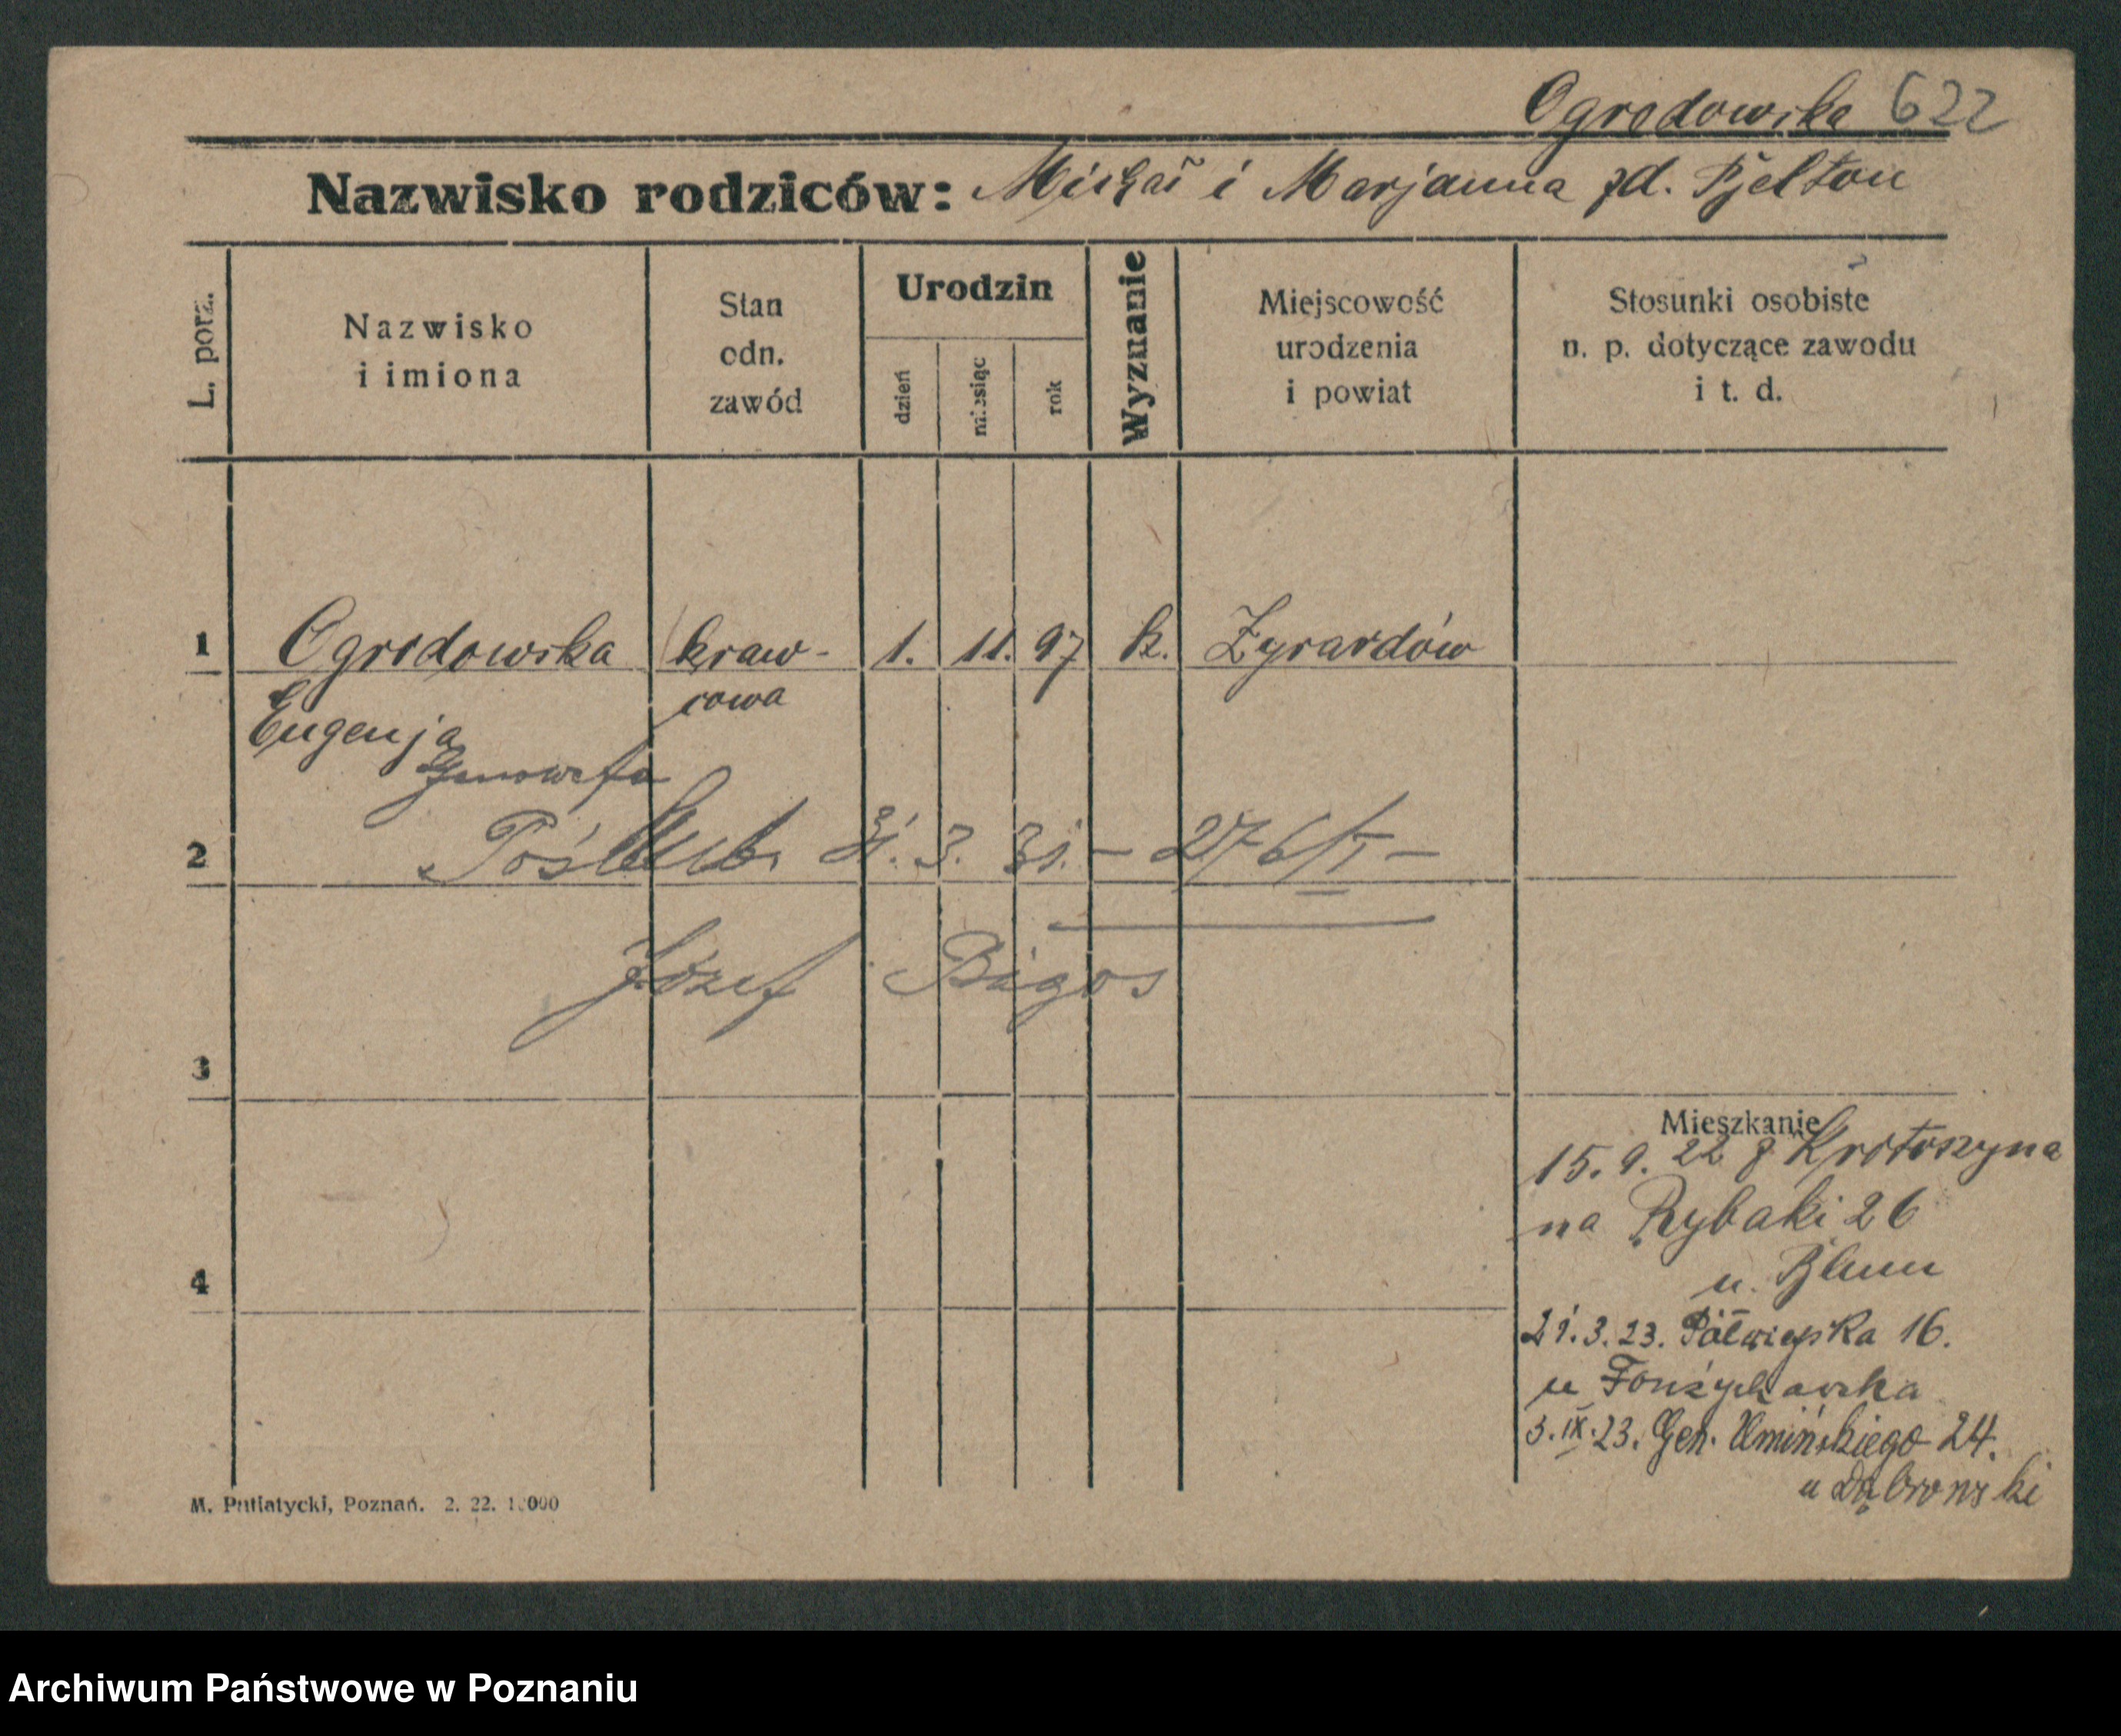 Ogrodowska 622
Nazwisko rodziców: Michał i Marjanna zd.
L. porz.
Nazwisko
i imiona
Stan
odn.
zawód
Urodzin
dzień
miesiąc
rok
Wyznanie
Miejscowość
urodzenia
i powiat
Stosunki osobiste
n. p. dotyczące zawodu
i t. d.
1 Ogrodowska kraw- 1. 11. 97 k. Żyrardów
Eugenja cowa
Genowefa
2 Poślub. 31. 3. 31. – 276/I –
Józef Bigos
3
Mieszkanie
15. 9. 22 z Krotoszyna
na Rybaki 26
u. Blum
4
21. 3. 23. Półwiejska 16.
u
3. IX. 23. Gen. Umińskiego 24.
u Dąbrowski
M. Putiatycki, Poznań. 2. 22. 1.000
Archiwum Państwowe w Poznaniu